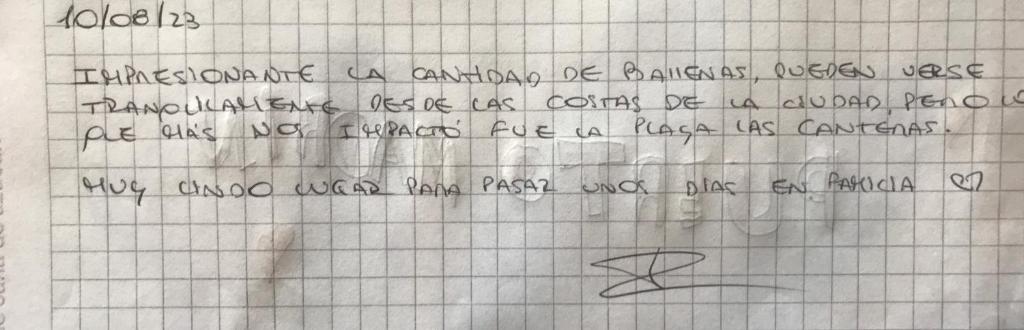 10/08/23
IMPRESIONANTE LA CANTIDAD DE BALLENAS, PUEDEN VERSE
TRANQUILAMENTE DESDE LAS COSTAS DE LA CIUDAD, PERO LO
QUE MÁS NOS IMPACTÓ FUE LA PLAYA LAS CANTERAS.
MUY LINDO LUGAR PARA PASAR UNOS DIAS EN FAMILIA